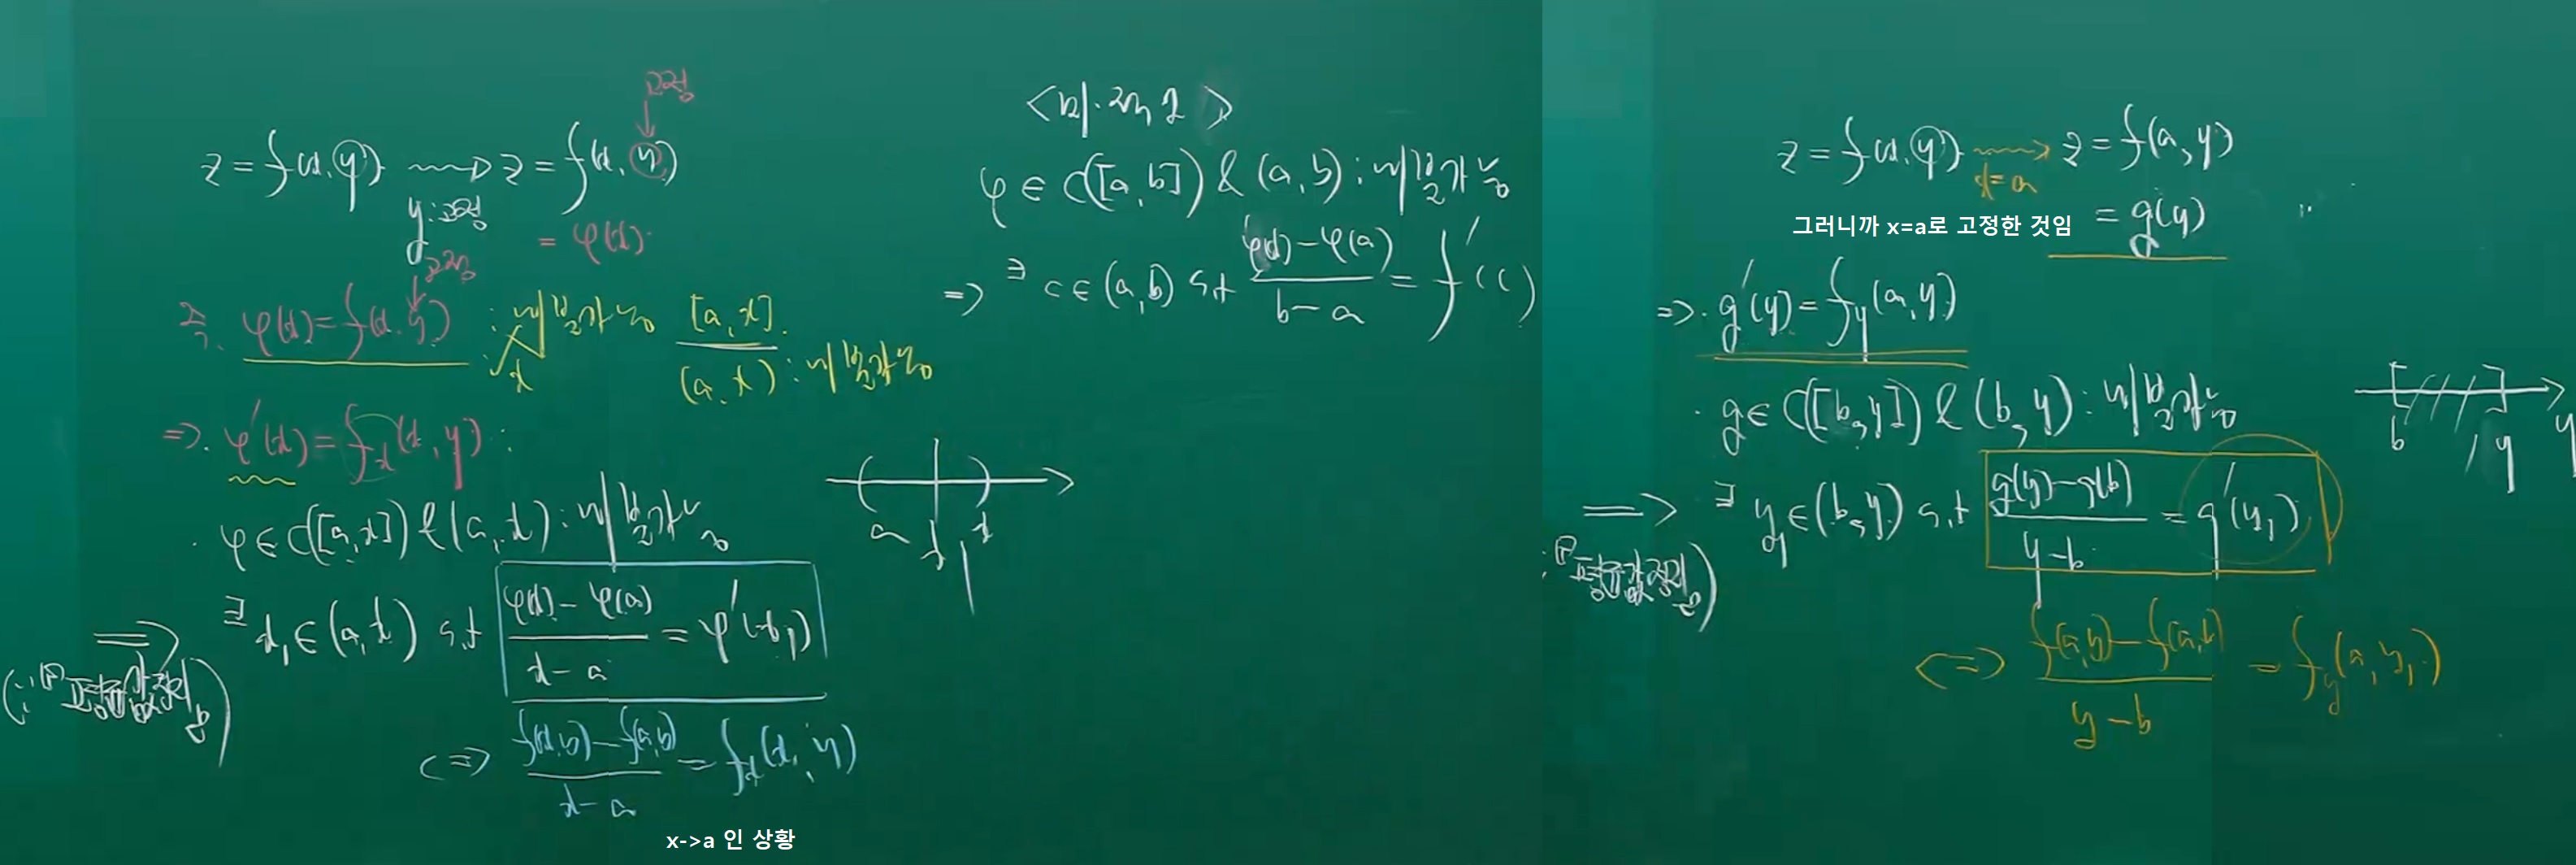 고정
z = f(x, y) ⇝ z = f(x, y)
y: 고정
= φ(x)
고정
즉. φ(x) = f(x, y) : 미분가능 [a, x].
x
(a, x) : 미분가능
⇒. φ'(x) = f_x(x, y)
· φ ∈ C([a, x]) & (a, x) : 미분가능
a x_1 x
⇒ ∃ x_1 ∈ (a, x) s.t (φ(x) - φ(a))/(x - a) = φ'(x_1)
(∵ 평균값정리)
<=> (f(x, y) - f(a, y))/(x - a) = f_x(x_1, y)
x->a 인 상황
φ ∈ C([a, b]) & (a, b) : 미분가능
⇒ ∃ c ∈ (a, b) s.t (φ(x) - φ(a))/(b - a) = f'(c)
z = f(x, y) ⇝ z = f(a, y)
x = a
그러니까 x=a로 고정한 것임 = g(y)
⇒. g'(y) = f_y(a, y)
· g ∈ C([b, y]) & (b, y) : 미분가능
b y_1 y y
⇒ ∃ y_1 ∈ (b, y) s.t (g(y) - g(b))/(y - b) = g'(y_1)
(∵ 평균값정리)
<=> (f(a, y) - f(a, b))/(y - b) = f_y(a, y_1)